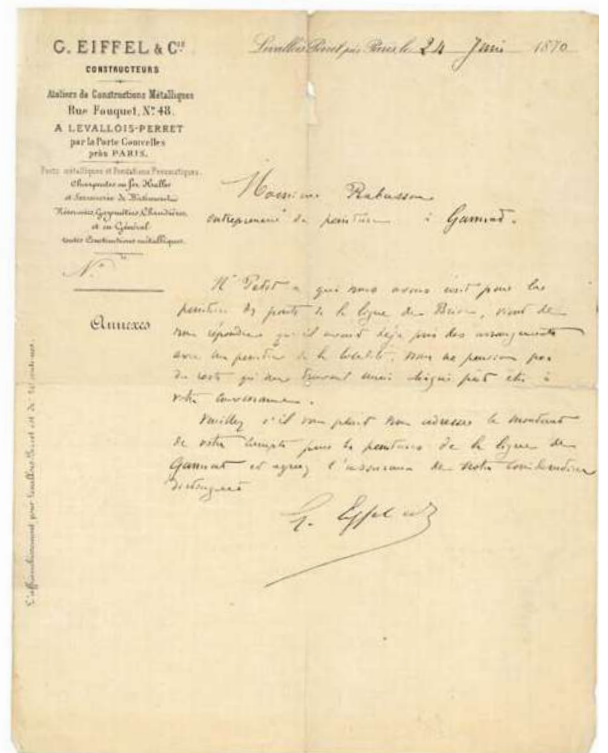 G. EIFFEL & Cie
CONSTRUCTEURS
Ateliers de Constructions Métalliques
Rue Fouquet, No 48.
A LEVALLOIS-PERRET
par la Porte Courcelles
près PARIS.
Ponts métalliques et Fondations Pneumatiques.
Charpentes en fer, Halles
et Serrurerie de Bâtiments
Réservoirs, Gazomètres, Chaudières,
et en Général
toutes Constructions métalliques.
No
Annexes
L'affranchissement pour Levallois-Perret est de centimes.
Levallois-Perret près Paris le 24 Juin 1870
Monsieur Rabusson
entrepreneur de peinture à Gannat.
Mr a qui nous avons écrit pour les
peintures des ponts de la ligne de, vient de
nous répondre qu'il avait déjà pris des arrangements
avec un peintre de la localité, nous ne pensons pas
du reste qu'un travail aussi éloigné put être à
votre convenance.
Veuillez s'il vous plait nous adresser le montant
de votre compte pour les peintures de la ligne de
Gannat et agréez l'assurance de notre considération
distinguée
G. Eiffel et Cie